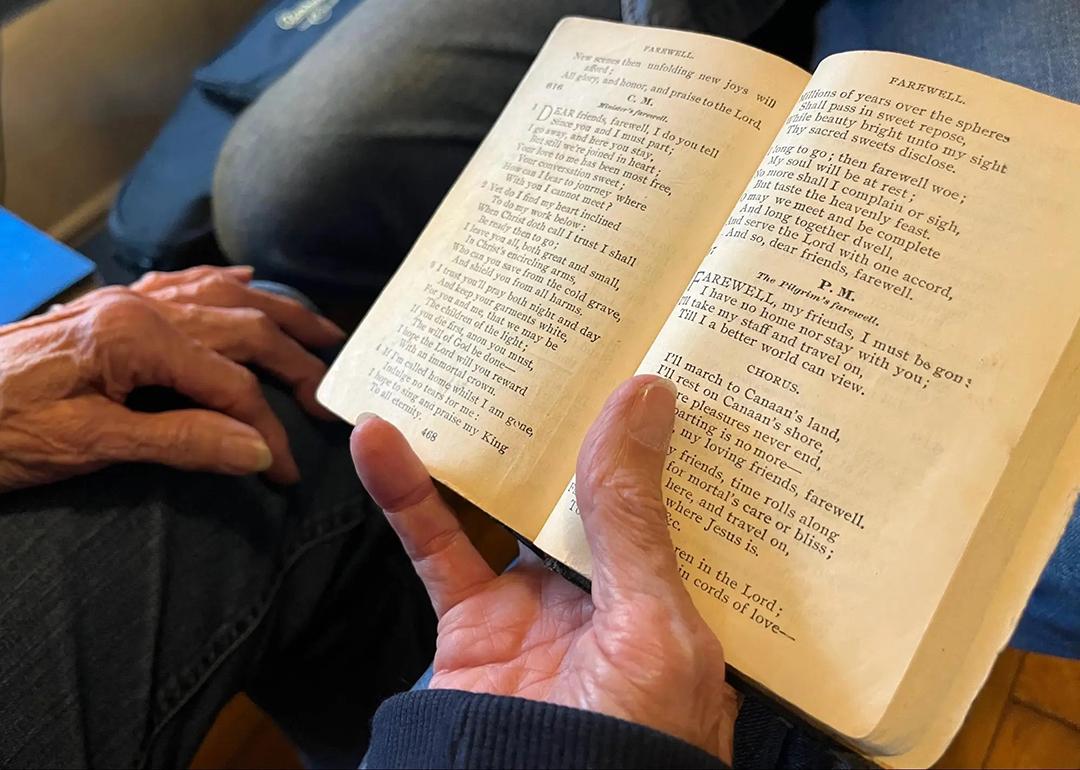 FAREWELL.
New scenes then unfolding new joys will
afford;
All glory, and honor, and praise to the Lord.
616
C. M.
Minister's farewell.
1 DEAR friends, farewell, I do you tell
Since you and I must part;
I go away, and here you stay,
But still we're joined in heart;
Your love to me has been most free,
Your conversation sweet;
How can I bear to journey where
With you I cannot meet?
2 Yet do I find my heart inclined
To do my work below:
When Christ doth call I trust I shall
Be ready then to go;
I leave you all, both great and small,
In Christ's encircling arms,
Who can you save from the cold grave,
And shield you from all harms.
3 I trust you'll pray both night and day
And keep your garments white,
For you and me, that we may be
The children of the light;
If you die first, anon you must,
The will of God be done—
I hope the Lord will you reward
With an immortal crown.
4 If I'm called home whilst I am gone,
Indulge no tears for me;
I hope to sing and praise my King
To all eternity.
468
FAREWELL.
Millions of years over the spheres
Shall pass in sweet repose,
While beauty bright unto my sight
Thy sacred sweets disclose.
long to go; then farewell woe;
My soul will be at rest;
No more shall I complain or sigh,
But taste the heavenly feast.
may we meet and be complete
And long together dwell,
And serve the Lord with one accord,
And so, dear friends, farewell.
P. M.
The Pilgrim's farewell.
FAREWELL, my friends, I must be gone;
I have no home nor stay with you;
I'll take my staff and travel on,
Till I a better world can view.
CHORUS.
I'll march to Canaan's land,
I'll rest on Canaan's shore,
re pleasures never end,
parting is no more—
my loving friends, farewell.
y friends, time rolls along
for mortal's care or bliss;
here, and travel on,
where Jesus is.
&c.
ren in the Lord;
in cords of love—